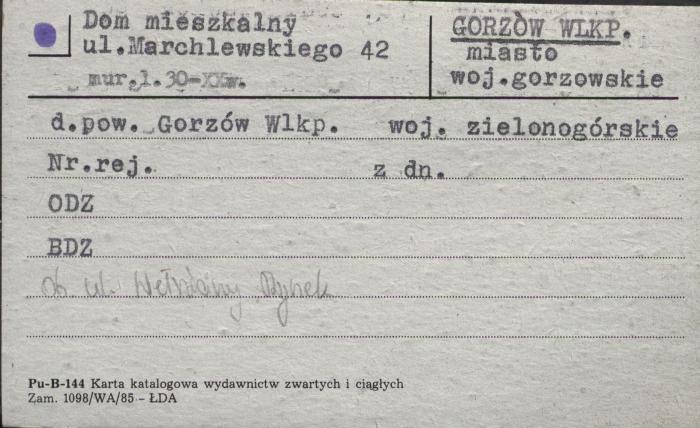 Dom mieszkalny
ul.Marchlewskiego 42
mur.l.30-XXw.
GORZÓW WLKP.
miasto
woj.gorzowskie
d.pow. Gorzów Wlkp. woj. zielonogórskie
Nr.rej. z dn.
ODZ
BDZ
ob. ul. Wełniany Rynek
Pu-B-144 Karta katalogowa wydawnictw zwartych i ciągłych
Zam. 1098/WA/85 - ŁDA